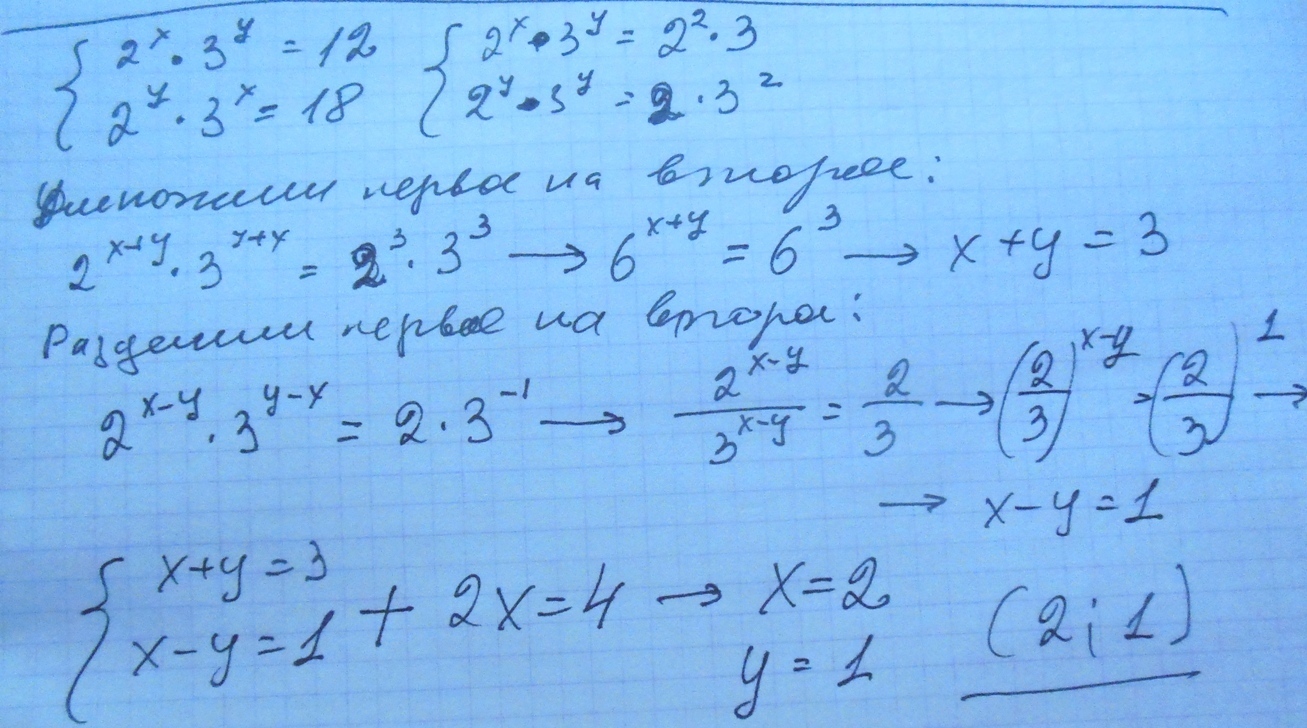 { 2^x · 3^y = 12 { 2^x · 3^y = 2^2 · 3
2^y · 3^x = 18 2^y · 3^y = 2 · 3^2
Умножим первое на второе:
2^(x+y) · 3^(y+x) = 2^3 · 3^3 → 6^(x+y) = 6^3 → x + y = 3
Разделим первое на второе:
2^(x-y) · 3^(y-x) = 2 · 3^(-1) → 2^(x-y) / 3^(x-y) = 2/3 → (2/3)^(x-y) = (2/3)^1 →
→ x - y = 1
{ x+y = 3
x - y = 1 + 2x = 4 → x = 2
y = 1 (2; 1)